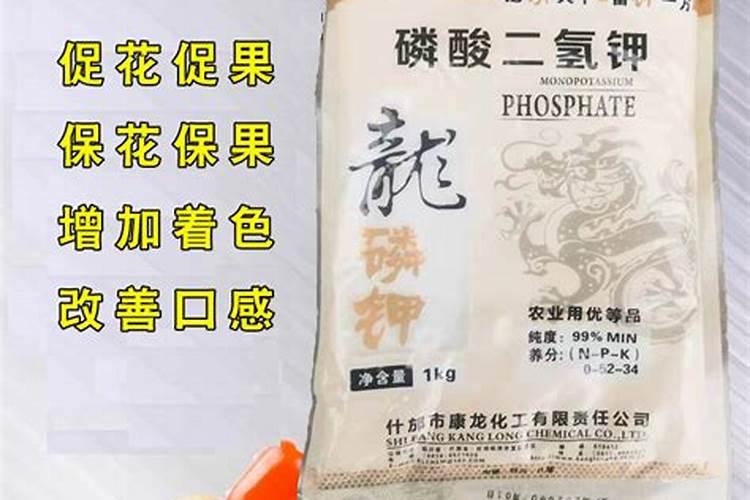 促花促果
保花保果
增加着色
改善口感
磷酸二氢钾
MONOPOTASSIUM
PHOSPHATE
龍
磷
钾
农业用优等品
纯度：99% MIN
养分：(N-P-K)
0-52-34
净含量 1kg
什邡市康龙化工有限责任公司
SHI FANG KANG LONG CHEMICAL CO.,LTD.